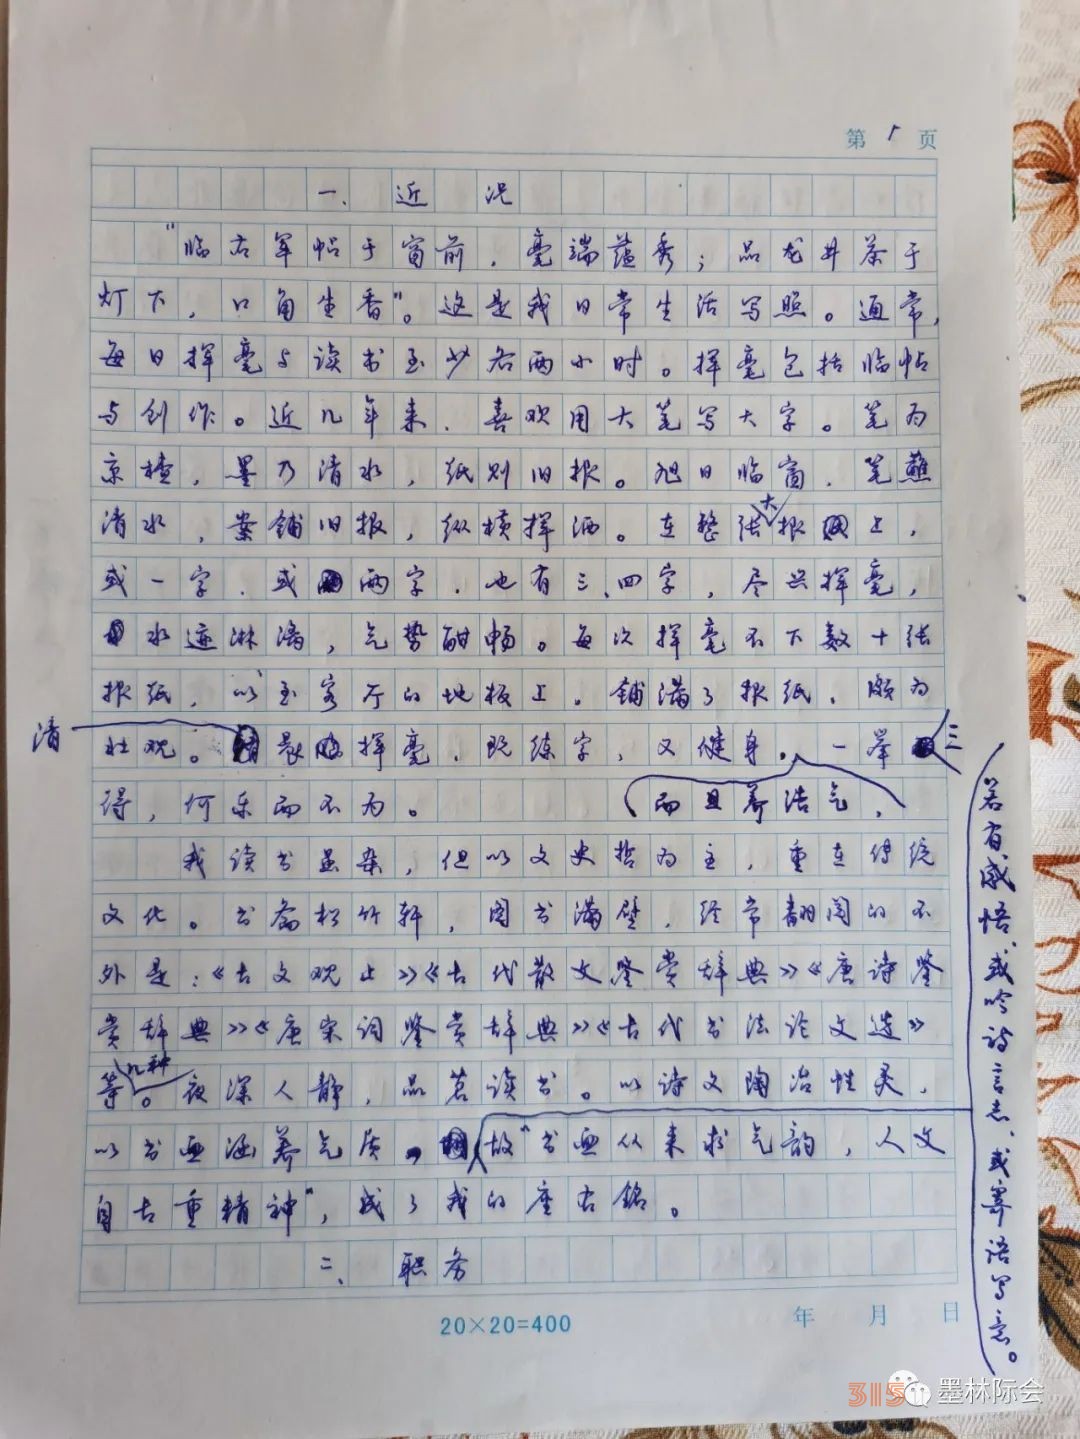 第1页
一、近况
“临右军帖于窗前，毫端蕴秀；品龙井茶于
灯下，口角生香”。这是我日常生活写照。通常，
每日挥毫与读书至少各两小时。挥毫包括临帖
与创作。近几年来，喜欢用大笔写大字。笔为
京楂，墨乃清水，纸则旧报。旭日临窗，笔蘸
清水，案铺旧报，纵横挥洒。在整张大报上，
或一字、或两字，也有三、四字，尽兴挥毫，
水迹淋漓，气势酣畅。每次挥毫不下数十张
报纸，以至客厅的地板上，铺满了报纸，颇为
壮观。清晨挥毫，既练字，又健身，一举三
得，何乐而不为。
而且养浩气，
我读书虽杂，但以文史哲为主，重在传统
文化。书斋松竹轩，图书满壁，经常翻阅的不
外是：《古文观止》《古代散文鉴赏辞典》《唐诗鉴
赏辞典》《唐宋词鉴赏辞典》《古代书法论文选》
等几种。夜深人静，品茗读书。以诗文陶冶性灵，
以书画涵养气质，故“书画从来求气韵，人文
自古重精神”，成了我的座右铭。
二、职务
若有感悟、或吟诗言志、或寄语写意。
20×20=400
年 月 日
315
墨林际会